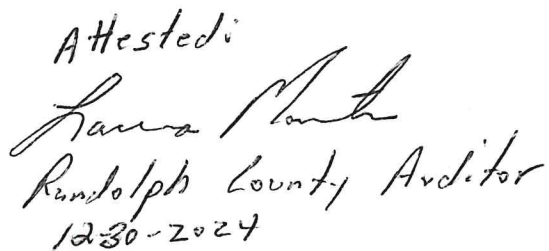 Attested:
Laura Martin
Randolph County Auditor
12-30-2024